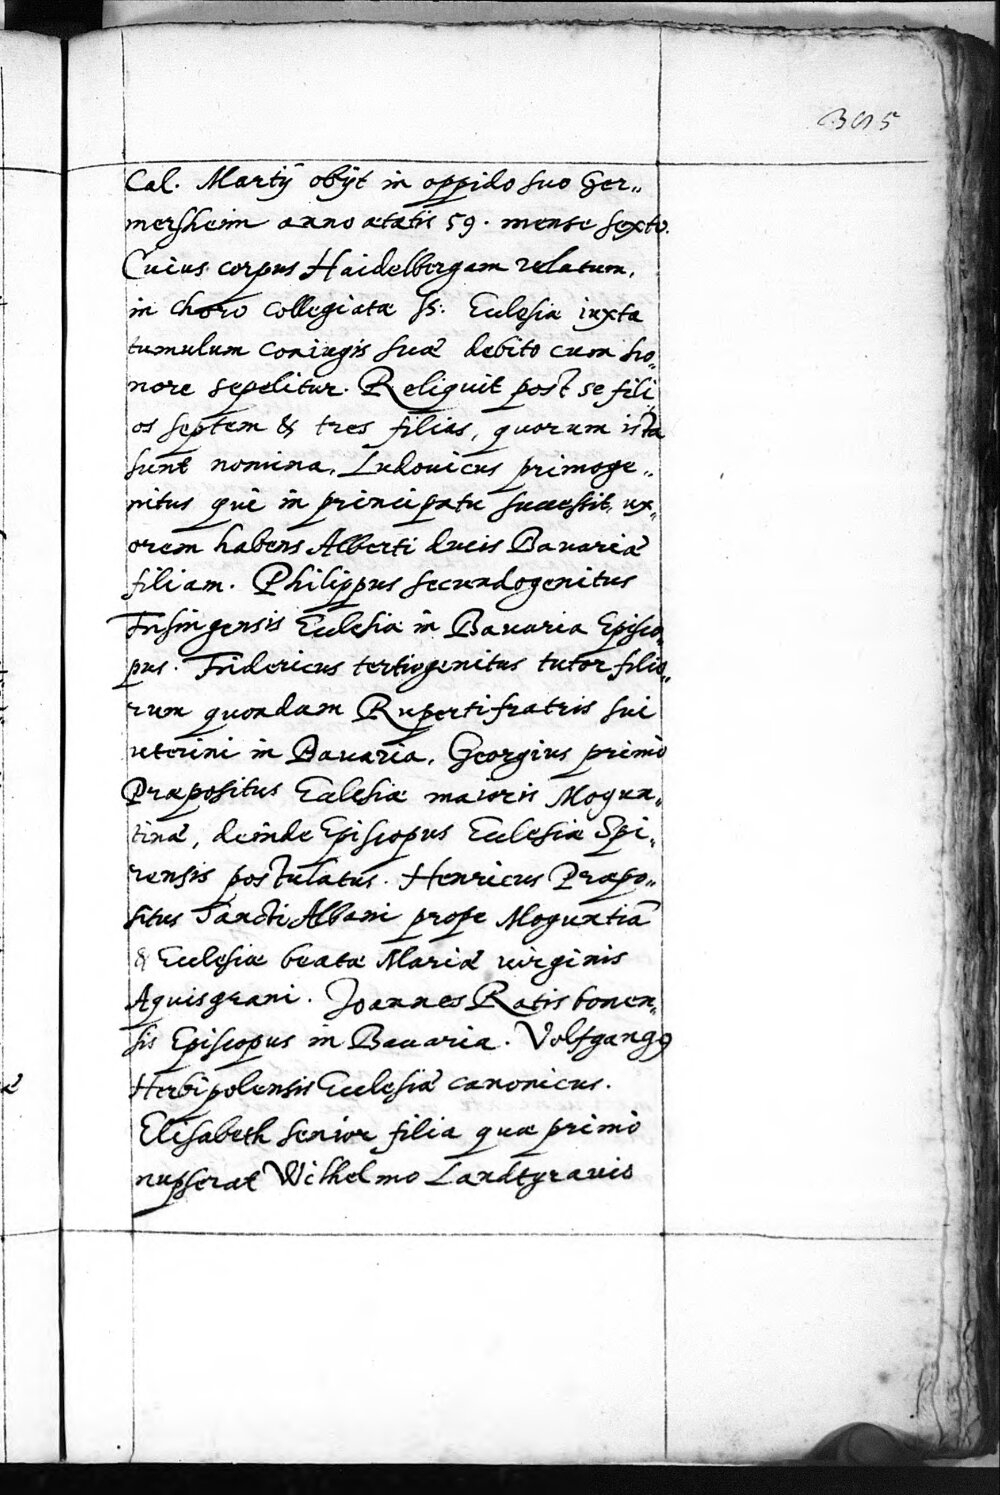 305
Cal. Martij obijt in oppido suo Ger„
mersheim anno ætatis 59. mense sexto.
Cuius corpus Haidelbergam relatum,
in choro collegiatæ S: Ecclesiæ iuxta
tumulum coniugis suæ debito cum ho„
nore sepelitur. Reliquit post se fili„
os septem & tres filias, quorum ista
sunt nomina, Ludouicus primoge„
nitus qui in principatu successit, ux„
orem habens Alberti ducis Bauariæ
filiam. Philippus secundogenitus
Frisingensis Ecclesiæ in Bauaria Episco„
pus. Fridericus tertiogenitus tutor filio„
rum quondam Ruperti fratris sui
uterini in Bauaria, Georgius primò
Præpositus Ecclesiæ maioris Mogun„
tinæ, deinde Episcopus Ecclesiæ Spi„
rensis postulatus. Henricus Præpo„
situs Sancti Albani prope Moguntiã
& Ecclesiæ beatæ Mariæ uirginis
Aquisgrani. Joannes Ratisbonen„
sis Episcopus in Bauaria. Volfgangꝰ
Herbipolensis Ecclesiæ canonicus.
Elisabeth senior filia quæ primò
nupserat Wilhelmo Landtgrauio